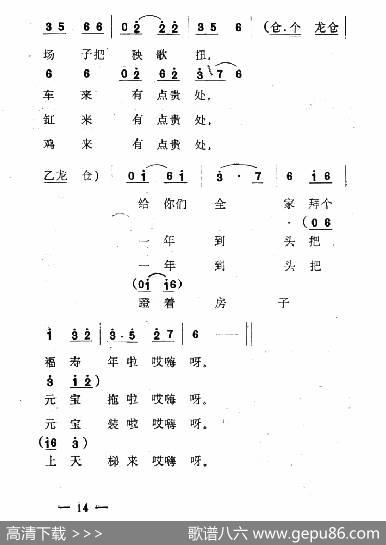 35 66 | 02 22 | 35 6 | (仓.个 龙仓
场 子把 秧歌 扭，
6 6 | 02 62 | 3 76
车 来 有 点贵 处，
缸 来 有 点贵 处，
鸡 来 有 点贵 处，
乙龙 仓) | 01 61 | 3 · 7 | 6 16
给 你们 全 家 拜个
· (06
一 年 到 头 把
一 年 到 头 把
(01 16)
蹬 着 房 子
1 32 | 3·5 27 | 6 —— ||
福 寿 年 啦 哎嗨 呀。
3 12)
元 宝 拖 啦 哎嗨 呀。
元 宝 装 啦 哎嗨 呀。
(16 3)
上 天 梯 来 哎嗨 呀。
— 14 —
高清下载 >>> 歌谱八六 www.gepu86.com